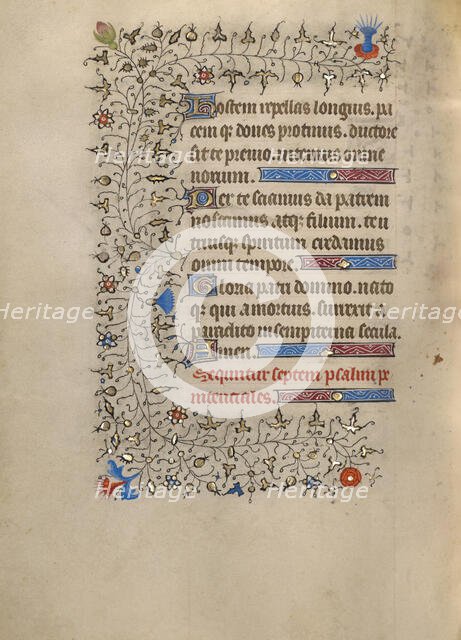 Hostem repellas longius. pa
cem qz dones protinus. ductore
sic te previo. vitemus omne
noxium.
Per te sciamus da patrem
noscamus. atqz filium. te u
triusqz spiritum credamus
omni tempore.
Gloria patri domino. nato
qz qui a mortuis. surrexit ac
paraclito in sempiterna secula.
Amen.
Sequntur septem psalmi pe
nitenciales.
Heritage Heritage Heritage
Heritage Heritage Heritage
Heritage Heritage